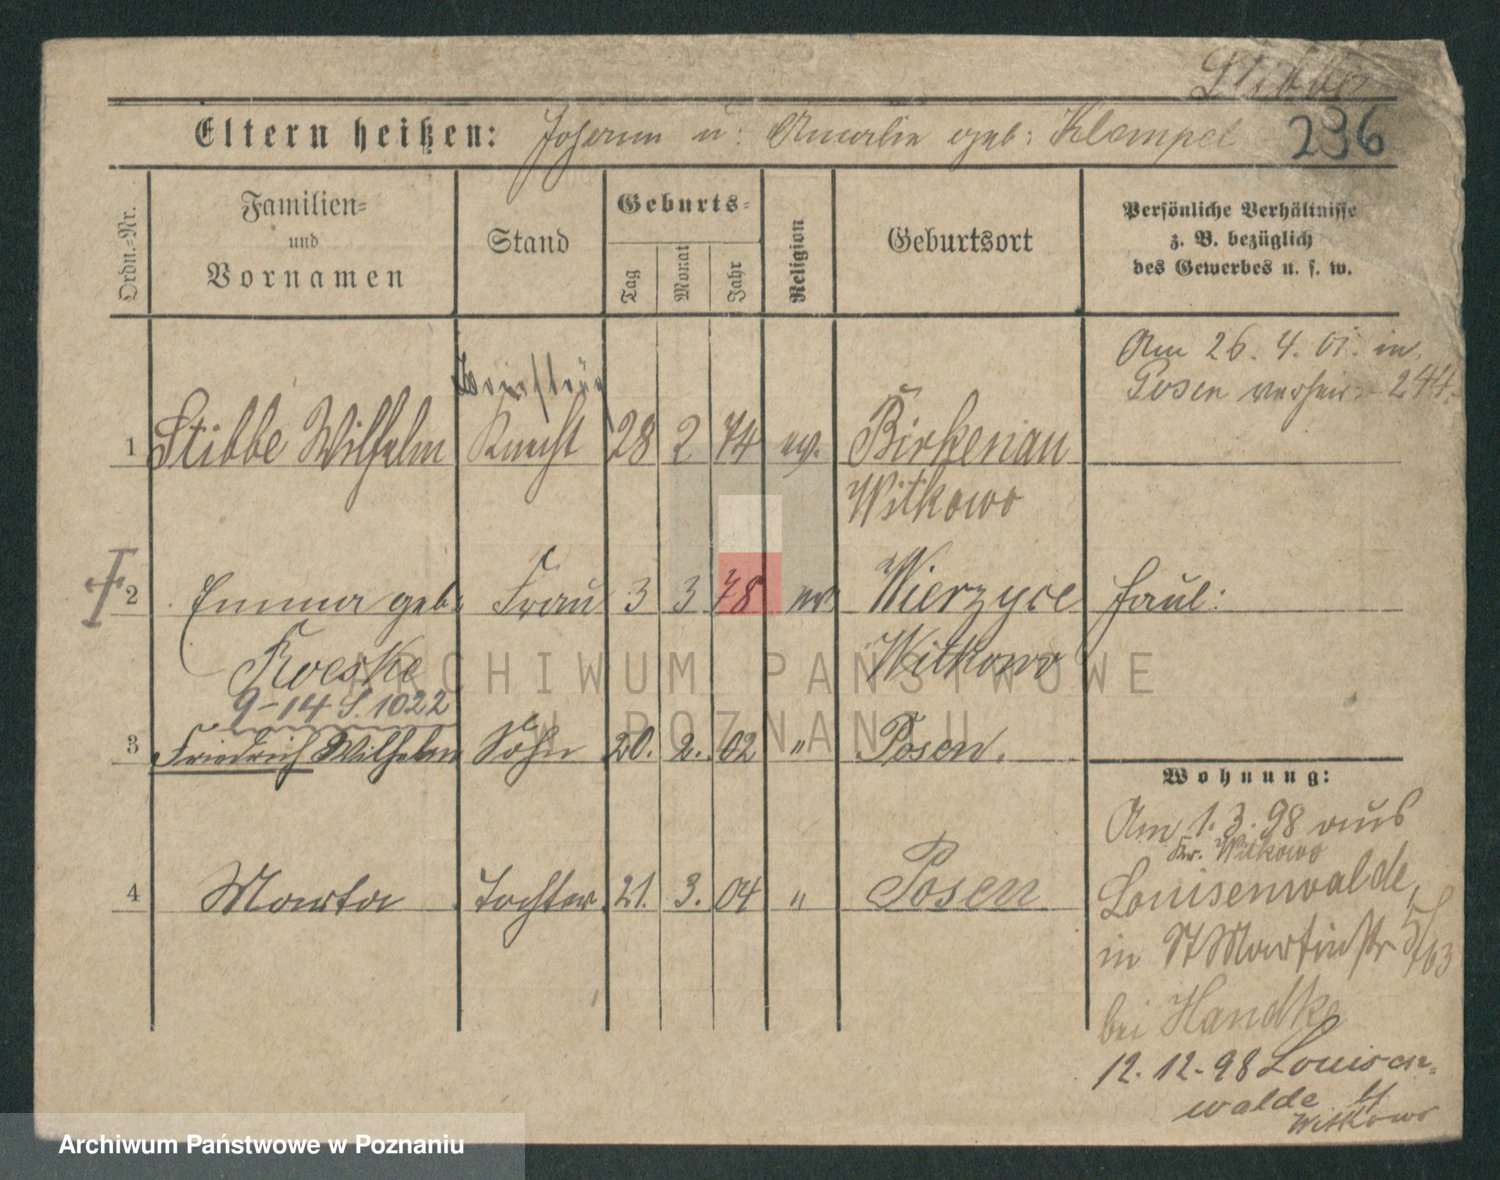 Stibbe
Eltern heißen: Johann u. Amalie geb. Klempel 236
Ordn.-Nr.
Familien-
und
Vornamen
Stand
Geburts-
Tag
Monat
Jahr
Religion
Geburtsort
Persönliche Verhältnisse
z. B. bezüglich
des Gewerbes u. s. w.
Am 26. 4. 01. in
Posen verheir. 244.
1 Stibbe Wilhelm Knecht 28 2 74 ev. Birkenau
Witkowo
2 Emma geb. Frau 3 3 78 ev. Wierzyce
Roeske Witkowo
9-14 S. 1022
3 Friedrich Wilhelm Sohn 20. 2. 02 " Posen.
Wohnung:
Am 1. 3. 98 aus
Kr. Witkowo
4 Marta Tochter 21. 3. 04 " Posen
Louisenwalde,
in St Martinstr
bei Handke
12. 12. 98 Louisen-
walde
Witkowo
ARCHIWUM PAŃSTWOWE
W POZNANIU
Archiwum Państwowe w Poznaniu